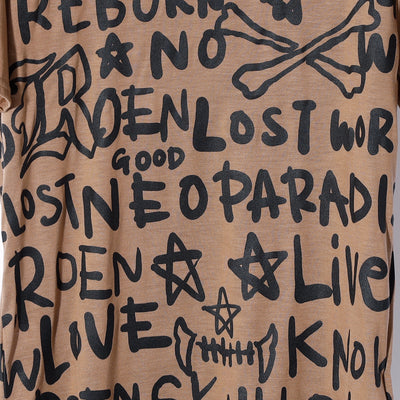 REBORN ★ NO
ROEN LOST WOR
GOOD
LOST NEO PARADI
ROEN ☆ ☆ Live
LOVE KNOW